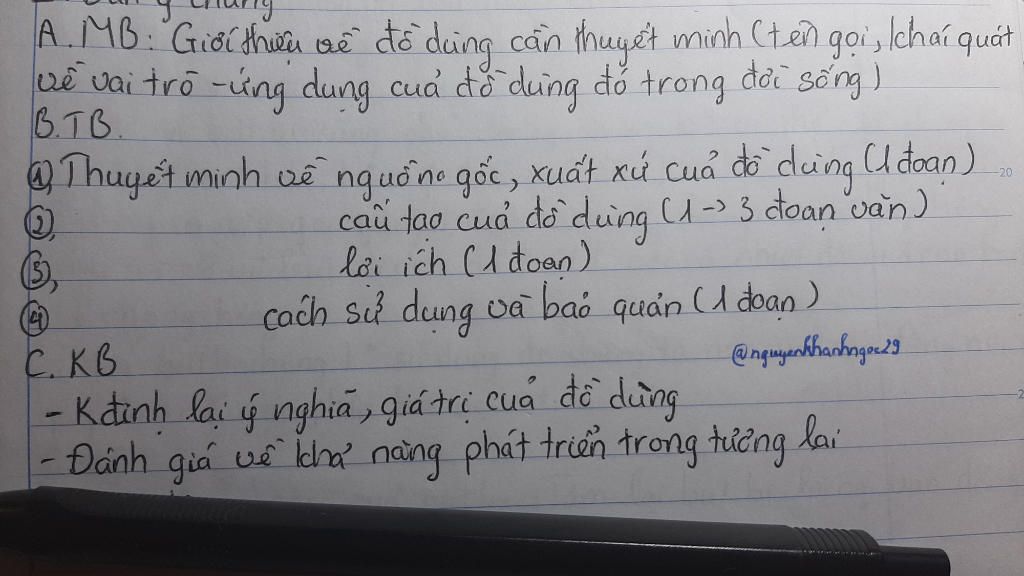 Dàn ý chung
A. MB: Giới thiệu về đồ dùng cần thuyết minh (tên gọi, khái quát
về vai trò - ứng dụng của đồ dùng đó trong đời sống)
B. TB.
①, Thuyết minh về nguồn gốc, xuất xứ của đồ dùng (1 đoạn)
20
②, cấu tạo của đồ dùng (1 -> 3 đoạn văn)
③, lợi ích (1 đoạn)
④ cách sử dụng và bảo quản (1 đoạn)
@nguyenkhanhngoc29
C. KB
- Kđịnh lại ý nghĩa, giá trị của đồ dùng
- Đánh giá về khả năng phát triển trong tương lai